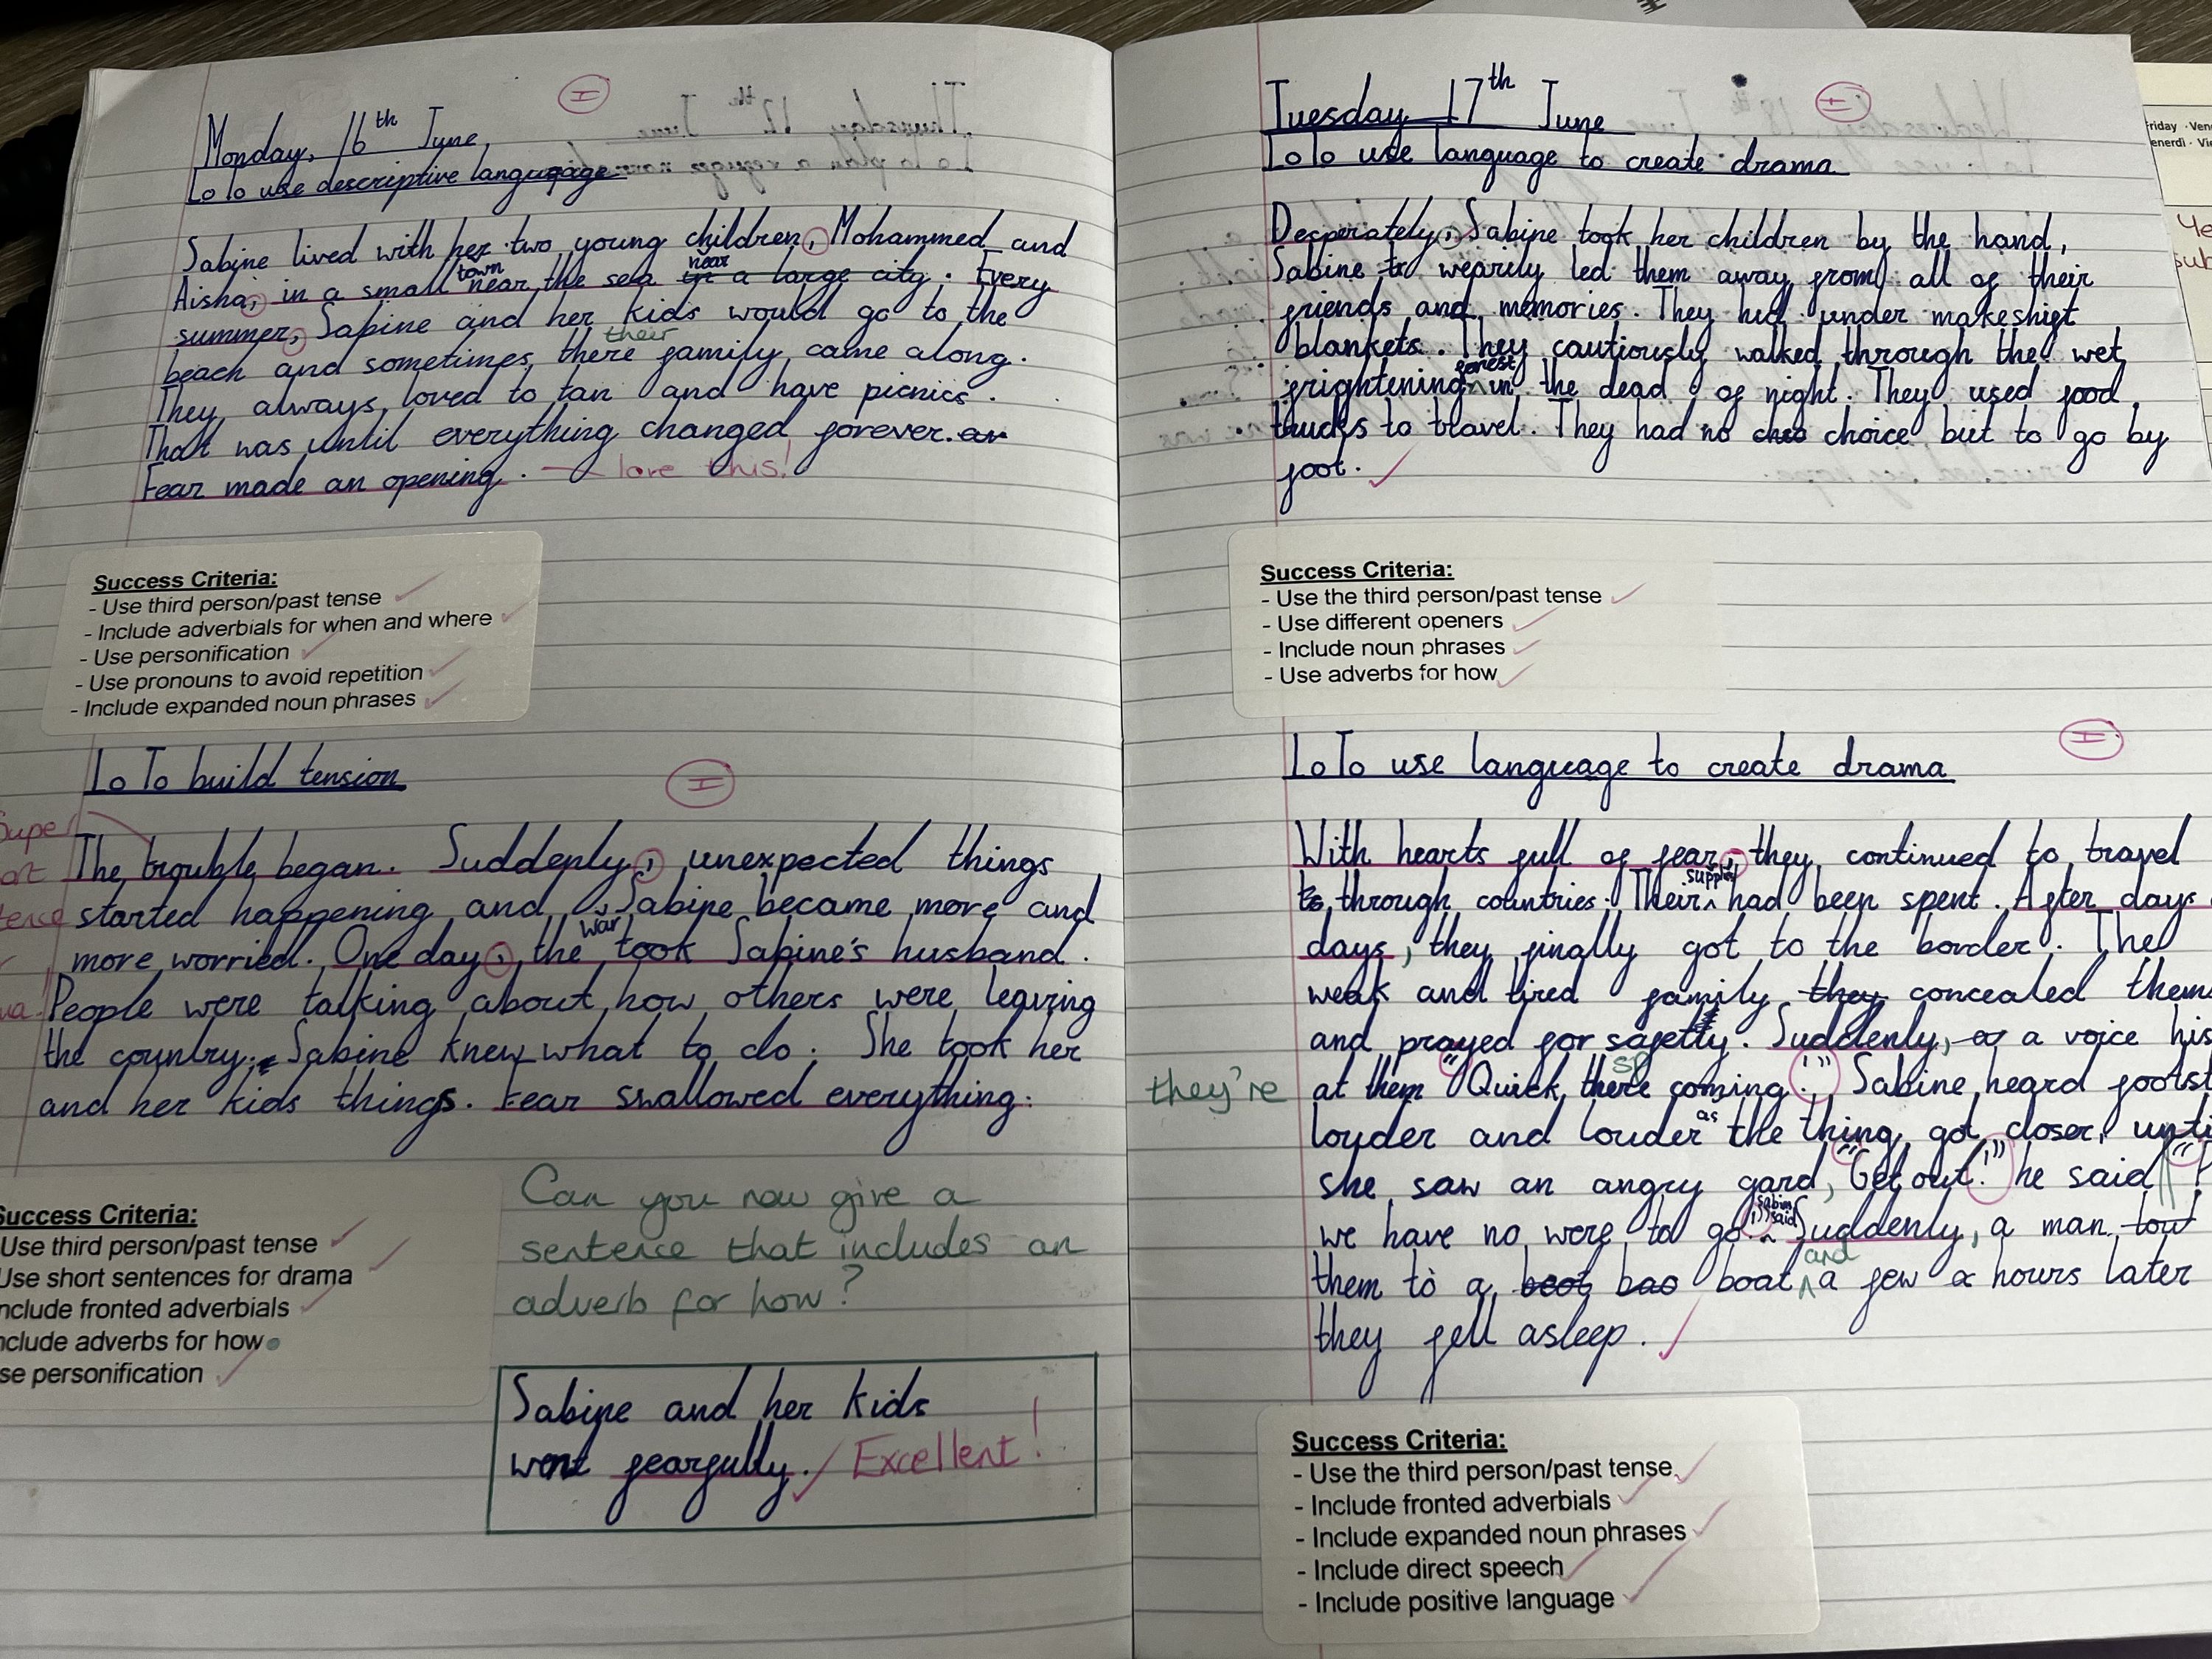 Monday, 16th June,
Lo To use descriptive language
Sabine lived with her two young children, Mohammed and
Aisha, in a small town near the sea near a large city. Every
summer, Sabine and her kids would go to the
their
beach and sometimes there family came along.
They always loved to tan and have picnics.
That was until everything changed forever.
Fear made an opening. love this!
Success Criteria:
- Use third person/past tense
- Include adverbials for when and where
- Use personification
- Use pronouns to avoid repetition
- Include expanded noun phrases
Lo To build tension
Super
The trouble began. Suddenly, unexpected things
started happening and Sabine became more and
more worried. One day, the war took Sabine's husband.
People were talking about how others were leaving
the country. Sabine knew what to do. She took her
and her kids things. Fear swallowed everything.
Success Criteria:
Use third person/past tense
Use short sentences for drama
nclude fronted adverbials
nclude adverbs for how
se personification
Can you now give a
sentence that includes an
adverb for how?
Sabine and her kids
went fearfully. Excellent!
Tuesday 17th June
Lo To use language to create drama
Desperately, Sabine took her children by the hand,
Sabine wearily led them away from all of their
friends and memories. They hid under makeshift
blankets. They cautiously walked through the wet
frightening forest in the dead of night. They used food
trucks to travel. They had no choice but to go by
foot.
Success Criteria:
- Use the third person/past tense
- Use different openers
- Include noun phrases
- Use adverbs for how
Lo To use language to create drama
With hearts full of fear, they continued to travel
through countries. Their had been spent. After days
days, they finally got to the border. The
weak and tired family they concealed them
and prayed for safetty. Suddenly, a voice his
sp
they're
at them "Quick, there coming!" Sabine heard footst
louder and louder as the thing got closer, unti
she saw an angry gard, "Get out!" he said "
we have no were to go!" Sabine said Suddenly, a man
them to a boat and a few hours later
they fell asleep.
Success Criteria:
- Use the third person/past tense
- Include fronted adverbials
- Include expanded noun phrases
- Include direct speech
- Include positive language